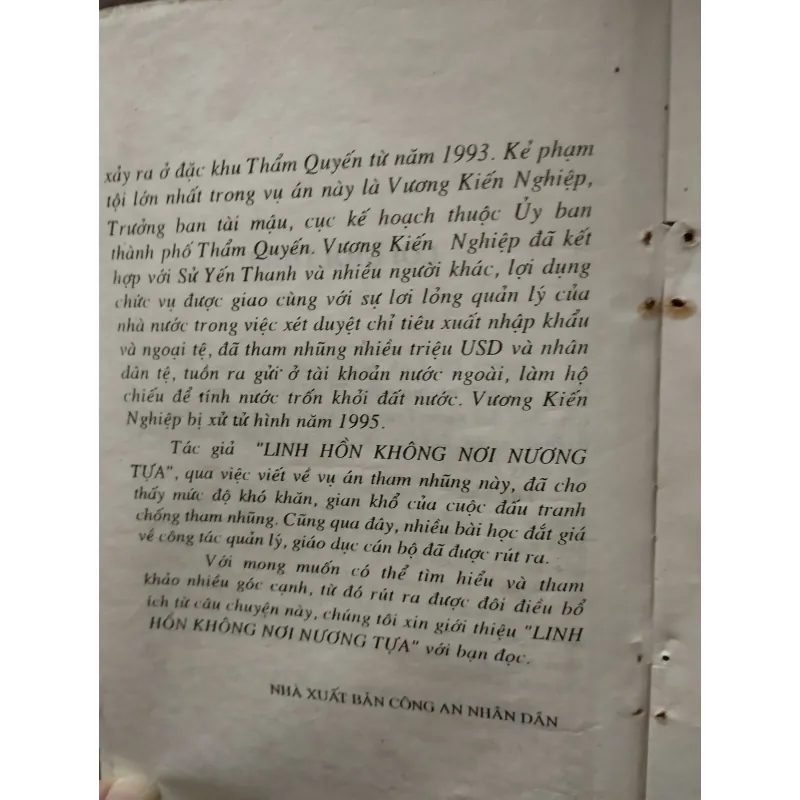 xảy ra ở đặc khu Thẩm Quyến từ năm 1993. Kẻ phạm
tội lớn nhất trong vụ án này là Vương Kiến Nghiệp,
Trưởng ban tài mậu, cục kế hoạch thuộc Ủy ban
thành phố Thẩm Quyến. Vương Kiến Nghiệp đã kết
hợp với Sử Yến Thanh và nhiều người khác, lợi dụng
chức vụ được giao cùng với sự lơi lỏng quản lý của
nhà nước trong việc xét duyệt chỉ tiêu xuất nhập khẩu
và ngoại tệ, đã tham nhũng nhiều triệu USD và nhân
dân tệ, tuồn ra gửi ở tài khoản nước ngoài, làm hộ
chiếu để tính nước trốn khỏi đất nước. Vương Kiến
Nghiệp bị xử tử hình năm 1995.
Tác giả "LINH HỒN KHÔNG NƠI NƯƠNG
TỰA", qua việc viết về vụ án tham nhũng này, đã cho
thấy mức độ khó khăn, gian khổ của cuộc đấu tranh
chống tham nhũng. Cũng qua đây, nhiều bài học đắt giá
về công tác quản lý, giáo dục cán bộ đã được rút ra.
Với mong muốn có thể tìm hiểu và tham
khảo nhiều góc cạnh, từ đó rút ra được đôi điều bổ
ích từ câu chuyện này, chúng tôi xin giới thiệu "LINH
HỒN KHÔNG NƠI NƯƠNG TỰA" với bạn đọc.
NHÀ XUẤT BẢN CÔNG AN NHÂN DÂN